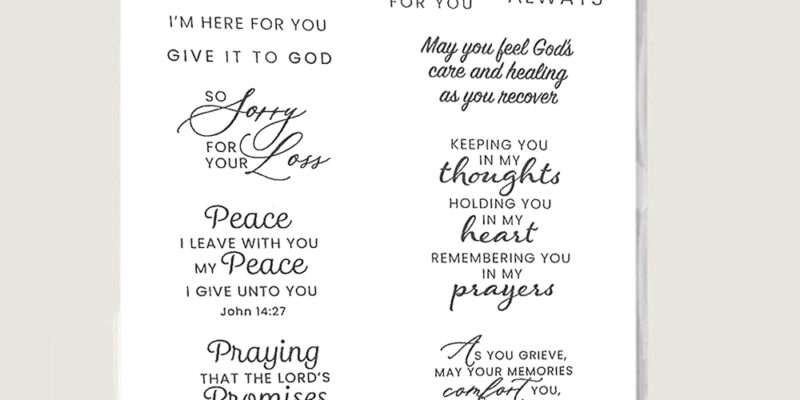 I'M HERE FOR YOU
GIVE IT TO GOD
SO Sorry
FOR
YOUR Loss
Peace
I LEAVE WITH YOU
MY Peace
I GIVE UNTO YOU
John 14:27
Praying
THAT THE LORD'S
Promises
FOR YOU
ALWAYS
May you feel God's
care and healing
as you recover
KEEPING YOU
IN MY
thoughts
HOLDING YOU
IN MY
heart
REMEMBERING YOU
IN MY
prayers
AS YOU GRIEVE,
MAY YOUR MEMORIES
comfort YOU,